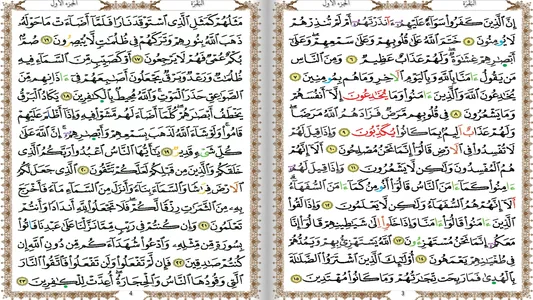 البقرة الجزء الأول
إِنَّ الذِينَ كَفَرُوا سَوَاءٌ عَلَيْهِمُ ءَآنذَرْتَهُمُ أَمْ لَمْ تُنذِرْهُمْ
لَا يُومِنُونَ ٥ خَتَمَ اللَّهُ عَلَى قُلُوبِهِمْ وَعَلَى سَمْعِهِمْ وَعَلَى
أَبْصَٰرِهِمْ غِشَٰوَةٌ وَلَهُمْ عَذَابٌ عَظِيمٌ ٦ وَمِنَ النَّاسِ
مَنْ يَقُولُ ءَامَنَّا بِاللَّهِ وَبِالْيَوْمِ الَاخِرِ وَمَا هُم بِمُومِنِينَ ٧
يُخَٰدِعُونَ اللَّهَ وَالذِينَ ءَامَنُوا وَمَا يُخَٰدِعُونَ إِلَّا أَنفُسَهُمْ
وَمَا يَشْعُرُونَ ٨ فِي قُلُوبِهِم مَّرَضٌ فَزَادَهُمُ اللَّهُ مَرَضًا
وَلَهُمْ عَذَابٌ أَلِيمٌ بِمَا كَانُوا يُكَذِّبُونَ ٩ وَإِذَا قِيلَ لَهُمْ
لَا تُفْسِدُوا فِي الَارْضِ قَالُوا إِنَّمَا نَحْنُ مُصْلِحُونَ ١٠ أَلَا إِنَّهُمْ
هُمُ الْمُفْسِدُونَ وَلَٰكِن لَّا يَشْعُرُونَ ١١ وَإِذَا قِيلَ لَهُمُ
ءَامِنُوا كَمَا ءَامَنَ النَّاسُ قَالُوا أَنُومِنُ كَمَا ءَامَنَ السُّفَهَاءُ
أَلَا إِنَّهُمْ هُمُ السُّفَهَاءُ وَلَٰكِن لَّا يَعْلَمُونَ ١٢ وَإِذَا لَقُوا
الذِينَ ءَامَنُوا قَالُوا ءَامَنَّا وَإِذَا خَلَوِا إِلَى شَيَٰطِينِهِمْ قَالُوا إِنَّا
مَعَكُمْ إِنَّمَا نَحْنُ مُسْتَهْزِءُونَ ١٣ اللَّهُ يَسْتَهْزِئُ بِهِمْ وَيَمُدُّهُمْ
فِي طُغْيَٰنِهِمْ يَعْمَهُونَ ١٤ أُوْلَٰئِكَ الذِينَ اشْتَرَوُا الضَّلَٰلَةَ
بِالْهُدَىٰ فَمَا رَبِحَت تِّجَٰرَتُهُمْ وَمَا كَانُوا مُهْتَدِينَ ١٥
البقرة الجزء الأول
مَثَلُهُمْ كَمَثَلِ الذِي اسْتَوْقَدَ نَارًا فَلَمَّا أَضَاءَتْ مَا حَوْلَهُ
ذَهَبَ اللَّهُ بِنُورِهِمْ وَتَرَكَهُمْ فِي ظُلُمَٰتٍ لَّا يُبْصِرُونَ ١٦ صُمٌّ
بُكْمٌ عُمْيٌ فَهُمْ لَا يَرْجِعُونَ ١٧ أَوْ كَصَيِّبٍ مِّنَ السَّمَاءِ فِيهِ
ظُلُمَٰتٌ وَرَعْدٌ وَبَرْقٌ يَجْعَلُونَ أَصَٰبِعَهُمْ فِي ءَاذَانِهِم مِّنَ
الصَّوَٰعِقِ حَذَرَ الْمَوْتِ وَاللَّهُ مُحِيطٌ بِالْكَٰفِرِينَ ١٨ يَكَادُ الْبَرْقُ
يَخْطَفُ أَبْصَٰرَهُمْ كُلَّمَا أَضَاءَ لَهُم مَّشَوْا فِيهِ وَإِذَا أَظْلَمَ عَلَيْهِمْ
قَامُوا وَلَوْ شَاءَ اللَّهُ لَذَهَبَ بِسَمْعِهِمْ وَأَبْصَٰرِهِمُ إِنَّ اللَّهَ عَلَى
كُلِّ شَيْءٍ قَدِيرٌ ١٩ يَٰأَيُّهَا النَّاسُ اعْبُدُوا رَبَّكُمُ الذِي
خَلَقَكُمْ وَالذِينَ مِن قَبْلِكُمْ لَعَلَّكُمْ تَتَّقُونَ ٢٠ الذِي جَعَلَ لَكُمُ
الَارْضَ فِرَٰشًا وَالسَّمَاءَ بِنَاءً وَأَنزَلَ مِنَ السَّمَاءِ مَاءً فَأَخْرَجَ
بِهِ مِنَ الثَّمَرَٰتِ رِزْقًا لَّكُمْ فَلَا تَجْعَلُوا لِلَّهِ أَندَادًا وَأَنتُمْ
تَعْلَمُونَ ٢١ وَإِن كُنتُمْ فِي رَيْبٍ مِّمَّا نَزَّلْنَا عَلَى عَبْدِنَا فَاتُوا
بِسُورَةٍ مِّن مِّثْلِهِ وَادْعُوا شُهَدَاءَكُم مِّن دُونِ اللَّهِ إِن
كُنتُمْ صَٰدِقِينَ ٢٢ فَإِن لَّمْ تَفْعَلُوا وَلَن تَفْعَلُوا فَاتَّقُوا النَّارَ
التِي وَقُودُهَا النَّاسُ وَالْحِجَارَةُ أُعِدَّتْ لِلْكَٰفِرِينَ ٢٣
4